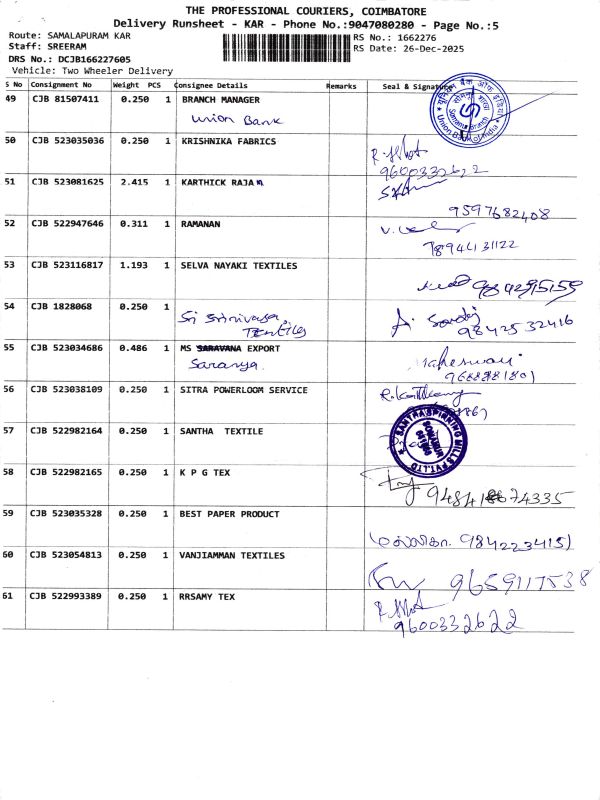 THE PROFESSIONAL COURIERS, COIMBATORE
Delivery Runsheet - KAR - Phone No.:9047080280 - Page No.:5
Route: SAMALAPURAM KAR
RS No.: 1662276
Staff: SREERAM
RS Date: 26-Dec-2025
DRS No.: DCJB166227605
Vehicle: Two Wheeler Delivery
S No Consignment No Weight PCS Consignee Details Remarks Seal & Signature
49 CJB 81507411 0.250 1 BRANCH MANAGER
union Bank
यूनियन बैंक ऑफ इंडिया
Union Bank of India
50 CJB 523035036 0.250 1 KRISHNIKA FABRICS
9600332622
51 CJB 523081625 2.415 1 KARTHICK RAJA
9597682408
52 CJB 522947646 0.311 1 RAMANAN
7894131122
53 CJB 523116817 1.193 1 SELVA NAYAKI TEXTILES
54 CJB 1828068 0.250 1
Sri Srinivasa
Textiles
9842532416
55 CJB 523034686 0.486 1 MS SARAVANA EXPORT
Saranya
Maheswari
9688881801
56 CJB 523038109 0.250 1 SITRA POWERLOOM SERVICE
57 CJB 522982164 0.250 1 SANTHA TEXTILE
SANTRA SPINNING MILLS PVT. LTD
SOMANUR
58 CJB 522982165 0.250 1 K P G TEX
74335
59 CJB 523035328 0.250 1 BEST PAPER PRODUCT
9842234151
60 CJB 523054813 0.250 1 VANJIAMMAN TEXTILES
9659117538
61 CJB 522993389 0.250 1 RRSAMY TEX
9600332622